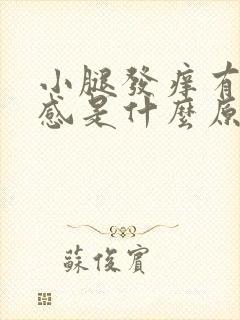 小腿發痒有
感是什麼原
蘇俊賓